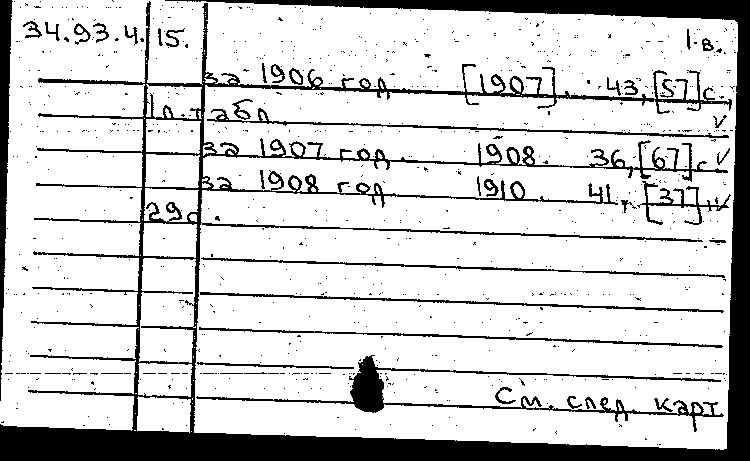 34.93.4.15. 1.в.
за 1906 год [1907]. 43,[57]с.,
1л.табл.
за 1907 год. 1908. 36,[67]с
за 1908 год 1910. 41, [37],
29с.
См. след. карт